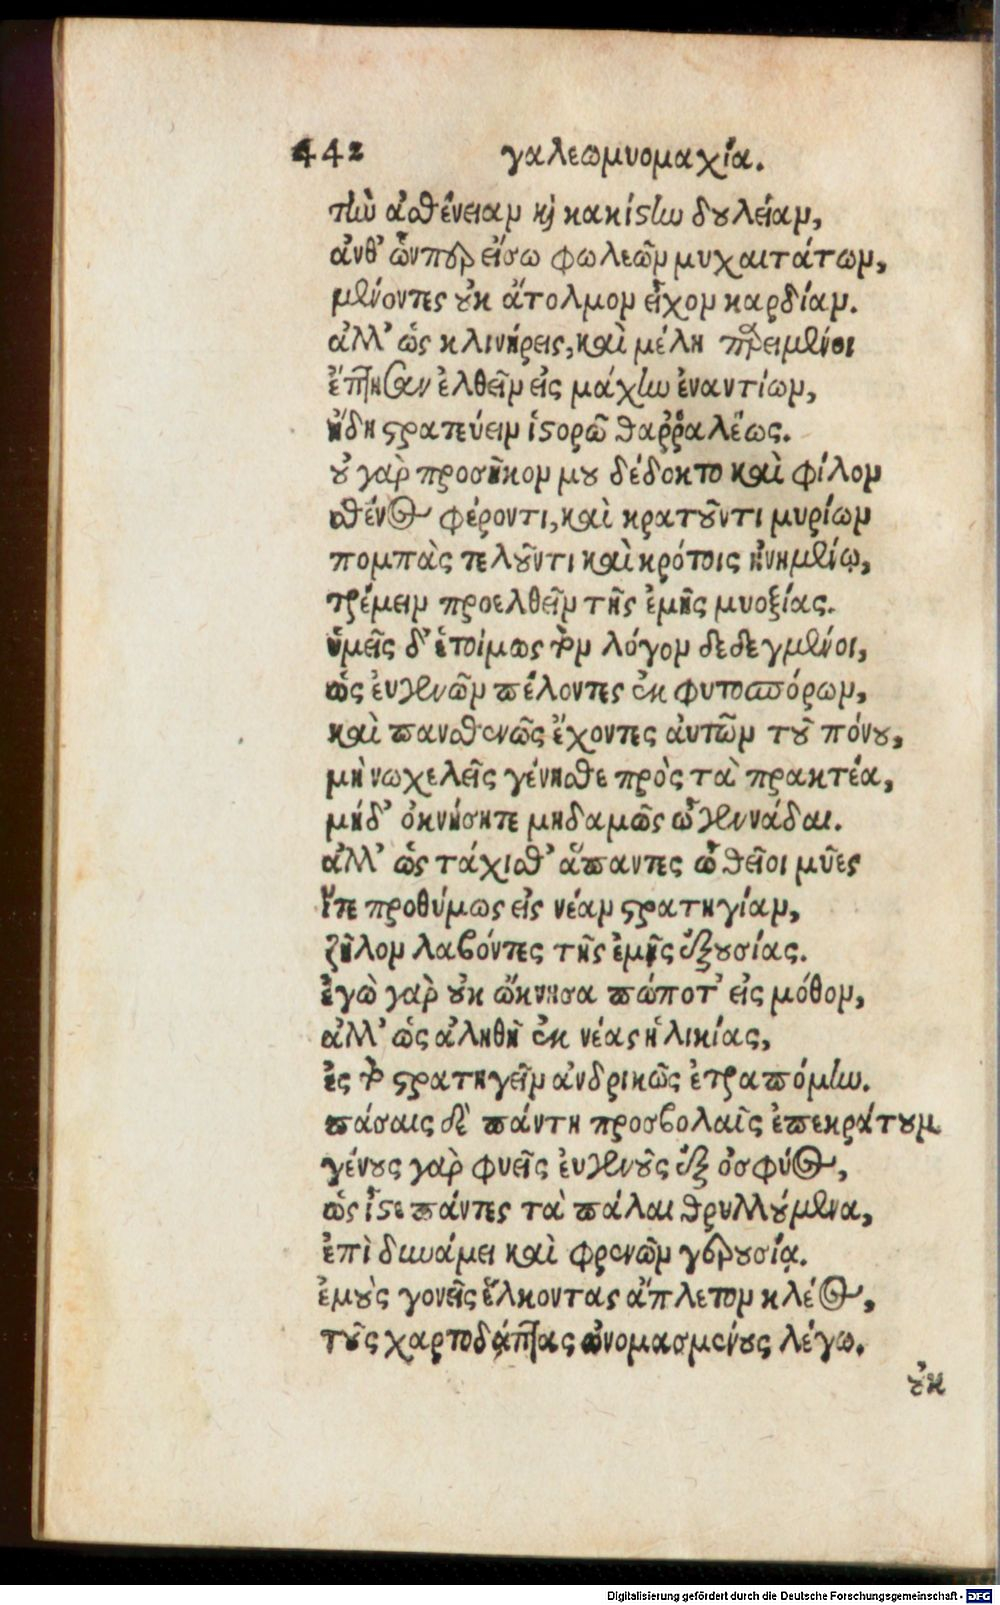 442 γαλεωμυομαχία.
τὴν ἀσθένειαν καὶ κακίστην δουλείαν,
ἀνθ' ὧνπερ εἴσω φωλεῶν μυχαιτάτων,
μένοντες οὐκ ἄτολμον εἶχον καρδίαν.
ἀλλ' ὡς κλινήρεις, καὶ μέλη παρειμένοι
ἔπτησαν ἐλθεῖν εἰς μάχην ἐναντίων,
ἤδη στρατεύειν ἱστορῶ θαῤῥαλέως.
οὐ γὰρ προσῆκον μου δέδοκτο καὶ φίλον
σθένος φέροντι, καὶ κρατοῦντι μυρίων
πομπὰς τελοῦντι καὶ κρότοις ᾐνημένῳ,
τρέμειν προελθεῖν τῆς ἐμῆς μυοξίας.
ὑμεῖς δ' ἑτοίμως τὸν λόγον δεδεγμένοι,
ὡς ἐυγενῶν πέλοντες ἐκ φυτοσπόρων,
καὶ πανσθενῶς ἔχοντες ἀυτῶν τοῦ πόνου,
μὴ νωχελεῖς γένησθε πρὸς τὰ πρακτέα,
μήδ' ὀκνήσητε μηδαμῶς ὦ γεννάδαι.
ἀλλ' ὡς τάχισθ' ἅπαντες ὦ θεῖοι μῦες
ἴτε προθύμως εἰς νέαν στρατηγίαν,
ζῆλον λαβόντες τῆς ἐμῆς ἐξουσίας.
ἐγὼ γὰρ οὐκ ὤκνησα πώποτ' εἰς μόθον,
ἀλλ' ὡς ἀληθῆ ἐκ νέας ἡλικίας,
ἐς τὸ στρατηγεῖν ἀνδρικῶς ἐτραπόμην.
πάσαις δὲ πάντη προσβολαῖς ἐπεκράτουν
γένους γὰρ φυεὶς ἐυγενοῦς ἐξ ὀσφύος,
ὡς ἴστε πάντες τὰ πάλαι θρυλλούμενα,
ἐπὶ δυνάμει καὶ φρενῶν γερουσίᾳ.
ἐμοὺς γονεῖς ἕλκοντας ἄπλετον κλέος,
τοὺς χαρτοδάπτας ὠνομασμένους λέγω.
οὐκ
Digitalisierung gefördert durch die Deutsche Forschungsgemeinschaft - DFG